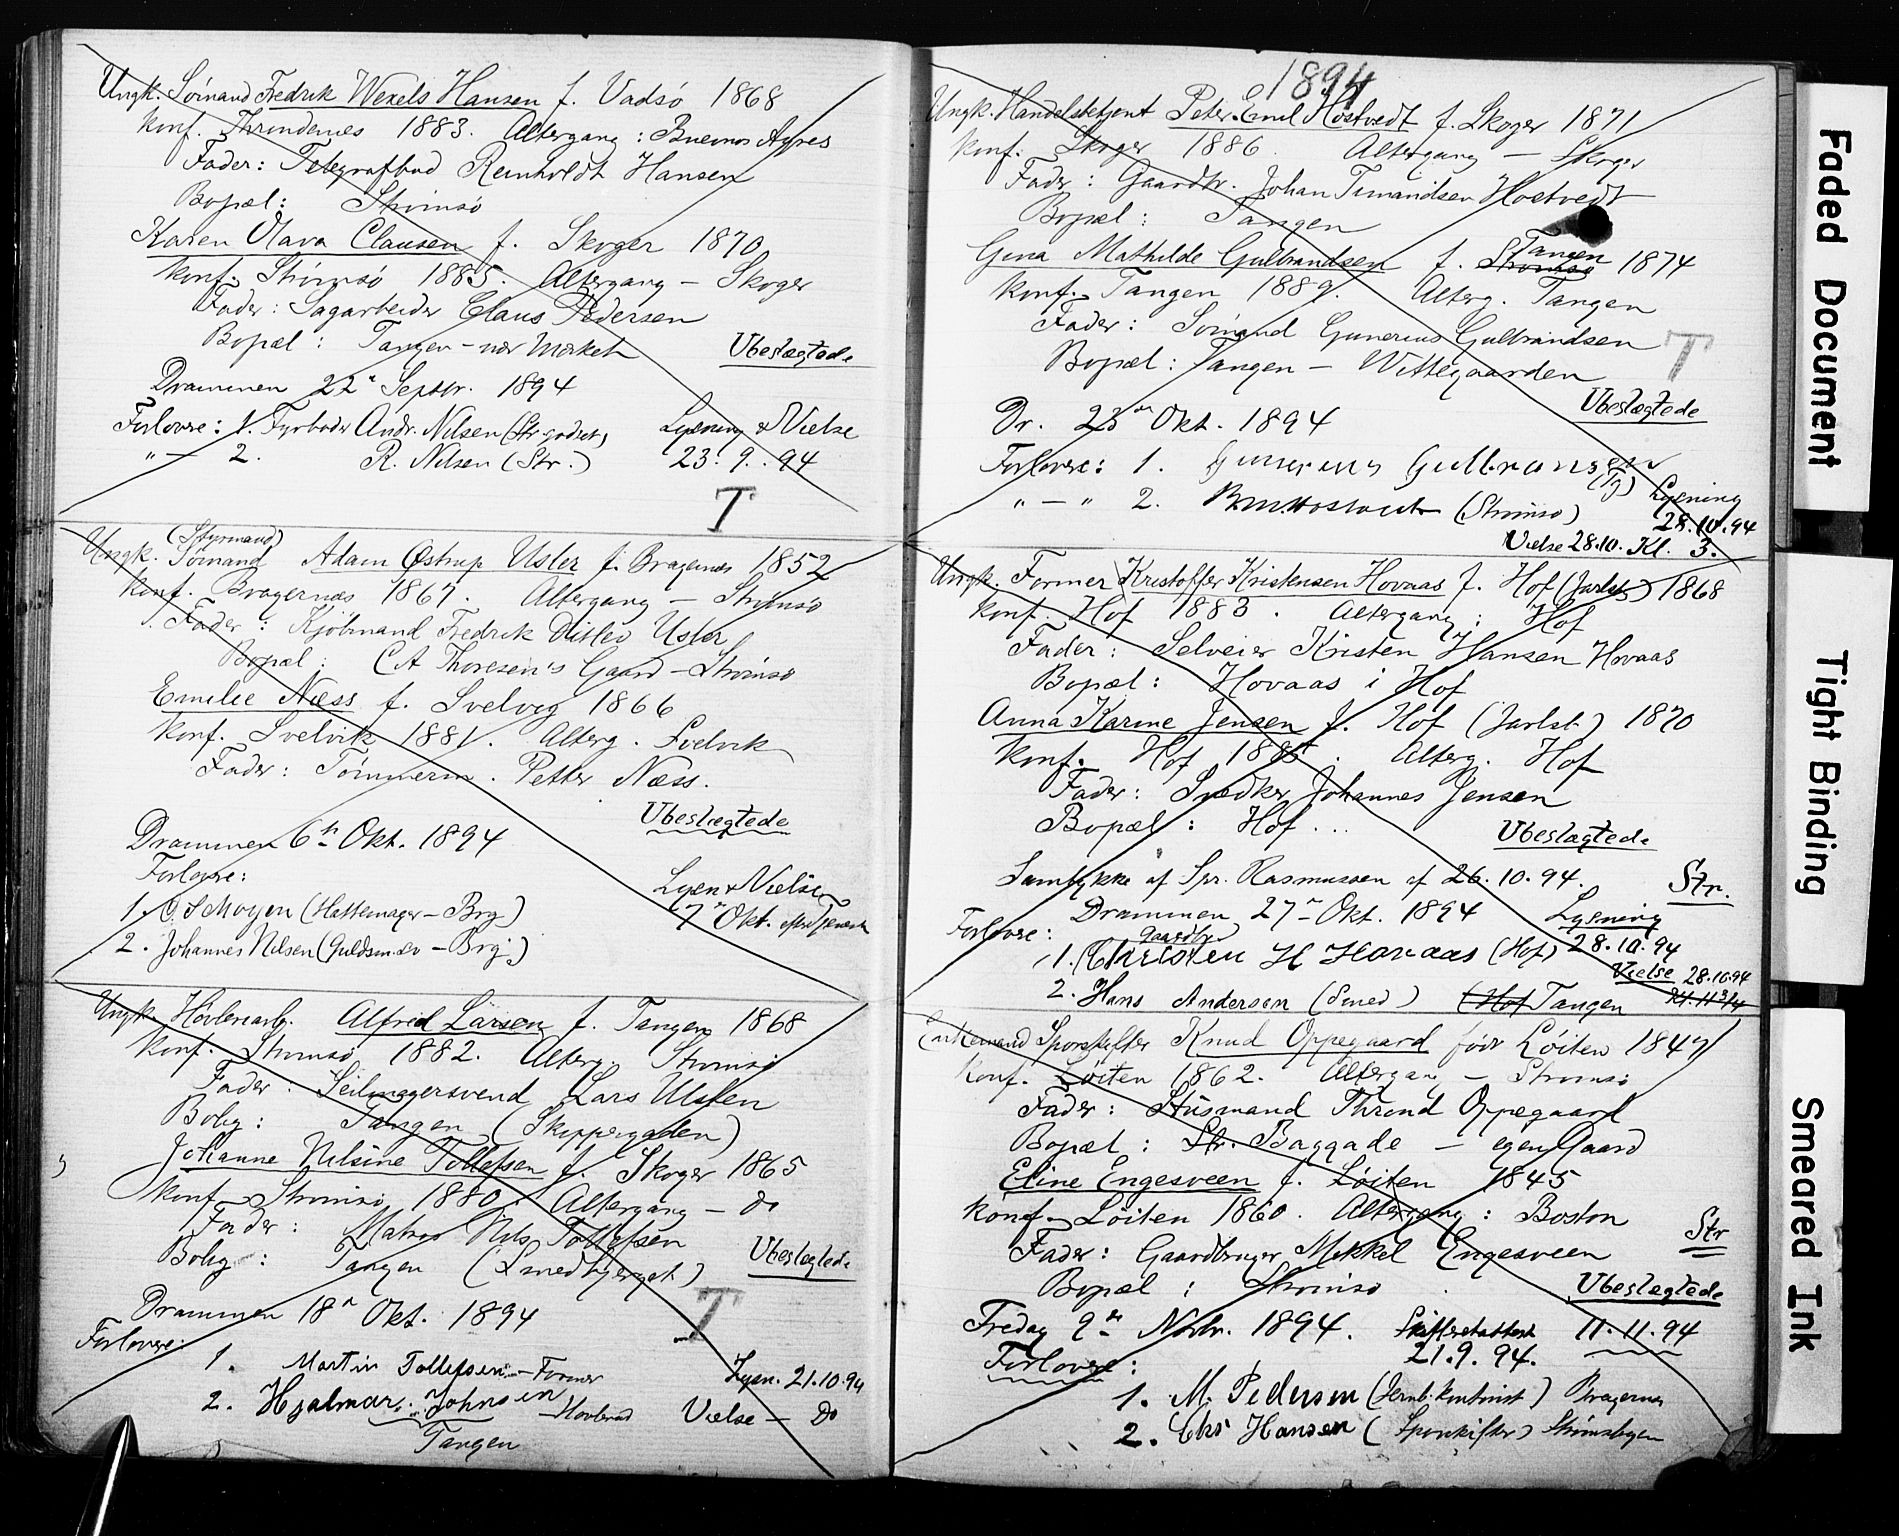 Ungk. Sømand Fredrik Wexels Hansen f. Vadsø 1868
Konf. Throndenes 1883. Altergang: Buenos Ayres
Fader: Telegrafbud Reinholdt Hansen
Bopæl: Strømsø
Karen Olava Clausen f. Skoger 1870
Konf. Strømsø 1885. Altergang – Skoger
Fader: Sagarbeider Claus Pedersen
Bopæl: Tangen – nær Mærket
Ubeslægtede
Drammen 22 Septbr. 1894
Forlovere: 1. Fyrbøder Andr. Nilsen (Str. godset)
Lysning & Vielse
" — 2. R. Nilsen (Str.)
23. 9. 94
T
(Styrmand)
Ungk. Sømand Adam Østrup Usler f. Bragernes 1852
Konf. Bragernæs 1867. Altergang – Strømsø
Fader: Kjøbmand Fredrik Ditlev Usler
Bopæl: C A Thoresen's Gaard – Strømsø
Emilie Næss f. Svelvig 1866
Konf. Svelvik 1881. Alterg. Svelvik
Fader: Tømmerm. Petter Næss.
Ubeslægtede
Drammen 6te Okt. 1894
Forlovere:
Lysn & Vielse
1. Moyen (Hattemager – Brg)
7 Okt.
2. Johannes Nilsen (Guldsmed – Brg.)
Ungk. Høvleriarb. Alfred Larsen f. Tangen 1868
Konf. Strømsø 1882. Alterg. Strømsø
Fader: Seilmagersvend Lars Ulsten
Bolig: Tangen (Skippergaden)
Johanne Nilsine Tollefsen f. Skoger 1865
Konf. Strømsø 1880. Altergang – do
Fader: Matros Nils Tollefsen
Bolig: Tangen (Smedbjerget)
Ubeslægtede
Drammen 18 Okt. 1894
T
Forlovere:
1. Martin Tollefsen – Former
Lysn. 21.10.94
2. Hjalmar Johnsen
Vielse – Do
Tangen
1894
Ungk. Handelsbetjent Peter Emil Hostvedt f. Skoger 1871
Konf. Skoger 1886. Altergang – Skoger
Fader: Gaardbr. Johan Hostvedt
Bopæl: Tangen
Tangen
Gina Mathilde Gulbrandsen f. Strømsø 1874
Konf. Tangen 1889. Alterg. Tangen
Fader: Sømand Gunerius Gulbrandsen
T
Bopæl: Tangen – Wittegaarden
Ubeslægtede
Dr. 23 Okt. 1894
Forlovere: 1. Gunerius Gulbransen
(Tg)
Lysning
" — " 2. (Strømsø)
28.10.94
Vielse 28.10. Kl. 3.
Ungk. Former Kristoffer Kristensen Hovaas f. Hof (Jarlsb.) 1868
Konf. Hof 1883. Altergang: Hof
Fader: Selveier Kristen Hansen Hovaas
Bopæl: Hovaas i Hof
Anna Karine Jensen f. Hof (Jarlsb.) 1870
Konf. Hof 1885. Alterg. Hof
Fader: Snedker Johannes Jensen
Bopæl: Hof ...
Ubeslægtede
Samtykke af Spr. Rasmussen af 26.10.94.
Str.
Drammen 27 Okt. 1894
Lysning
Forlovere:
28.10.94
Gaardbr.
1. Christen H Hovaas (Hof)
Vielse 28.10.94
2. Hans Andersen (Smed) (Hof Tangen
Kl. 11 3/4
Enkemand Sporskifter Knud Oppegaard født Løiten 1847
Konf. Løiten 1862. Altergang – Strømsø
Fader: Husmand Thrond Oppegaard
Bopæl: Str. Baggade – egen Gaard
Eline Engesveen f. Løiten 1845
Konf. Løiten 1860. Altergang: Boston
Str
Fader: Gaardbruger Mikkel Engesveen
Bopæl: Strømsø
Ubeslægtede
Fredag 9 Novbr. 1894.
Skifteretsattest
21.9.94.
11.11.94
Forlovere:
1. M. Pedersen (Jernb. kontorist) Bragernes
2. Chr Hansen (Sporskifter) Strømsbyen
Faded Document
Tight Binding
Smeared Ink